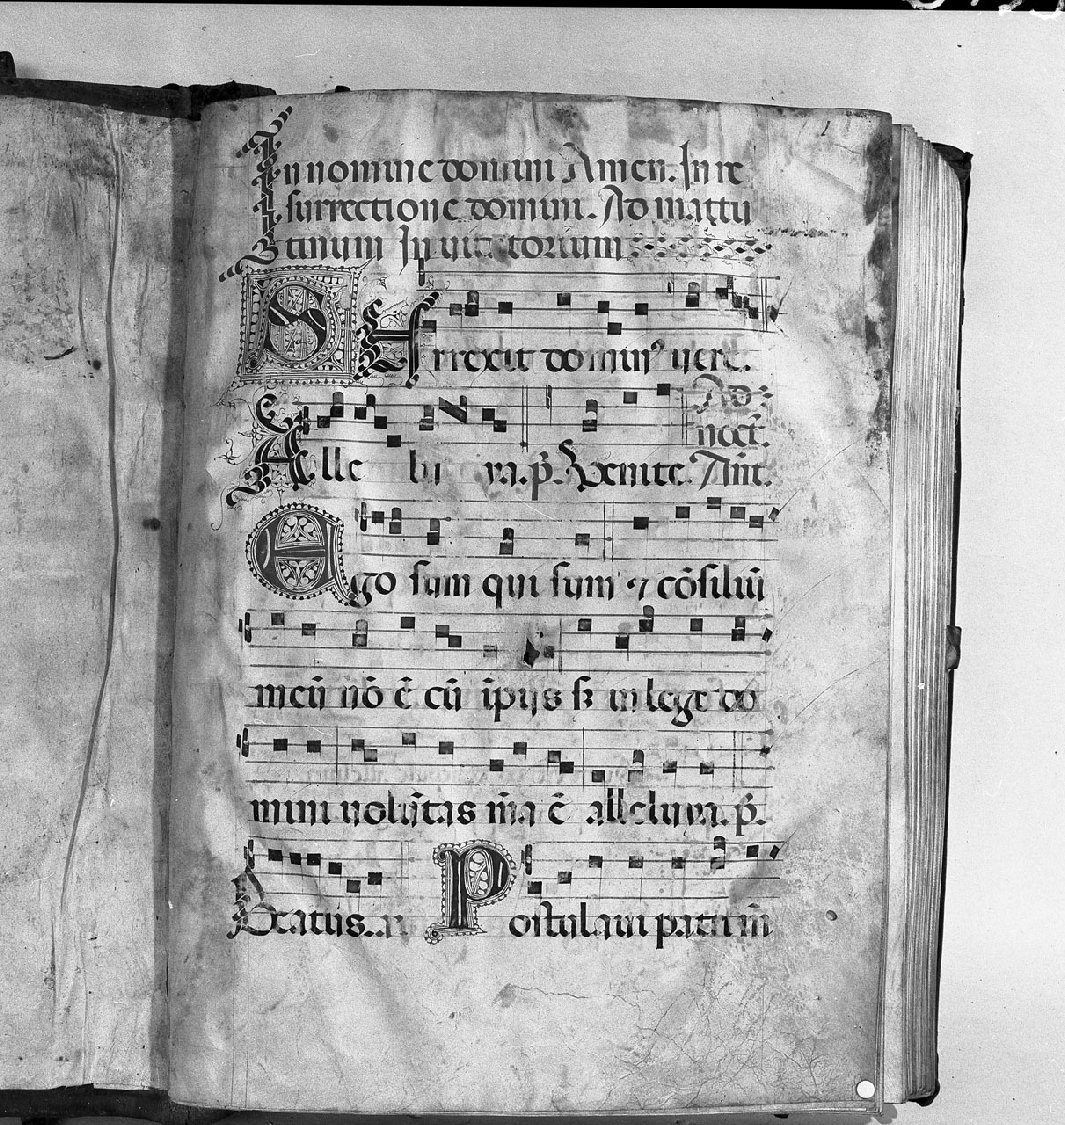 In nomine domini Amen. In re
surrectione domini. Ad mattu
tinum Inuitatorium
SUrrexit domin⁹ uere.
Ad
noct̄.
Alle lu ya. p̄. Uenite. Añt.
Ego sum qui sum ⁊ cōsiliū
meū nō ē cū īpiis sꝫ in lege do
mini uolūtas m̄a ē alleluya. p̄.
Beatus. a
Postulaui patrē m̄